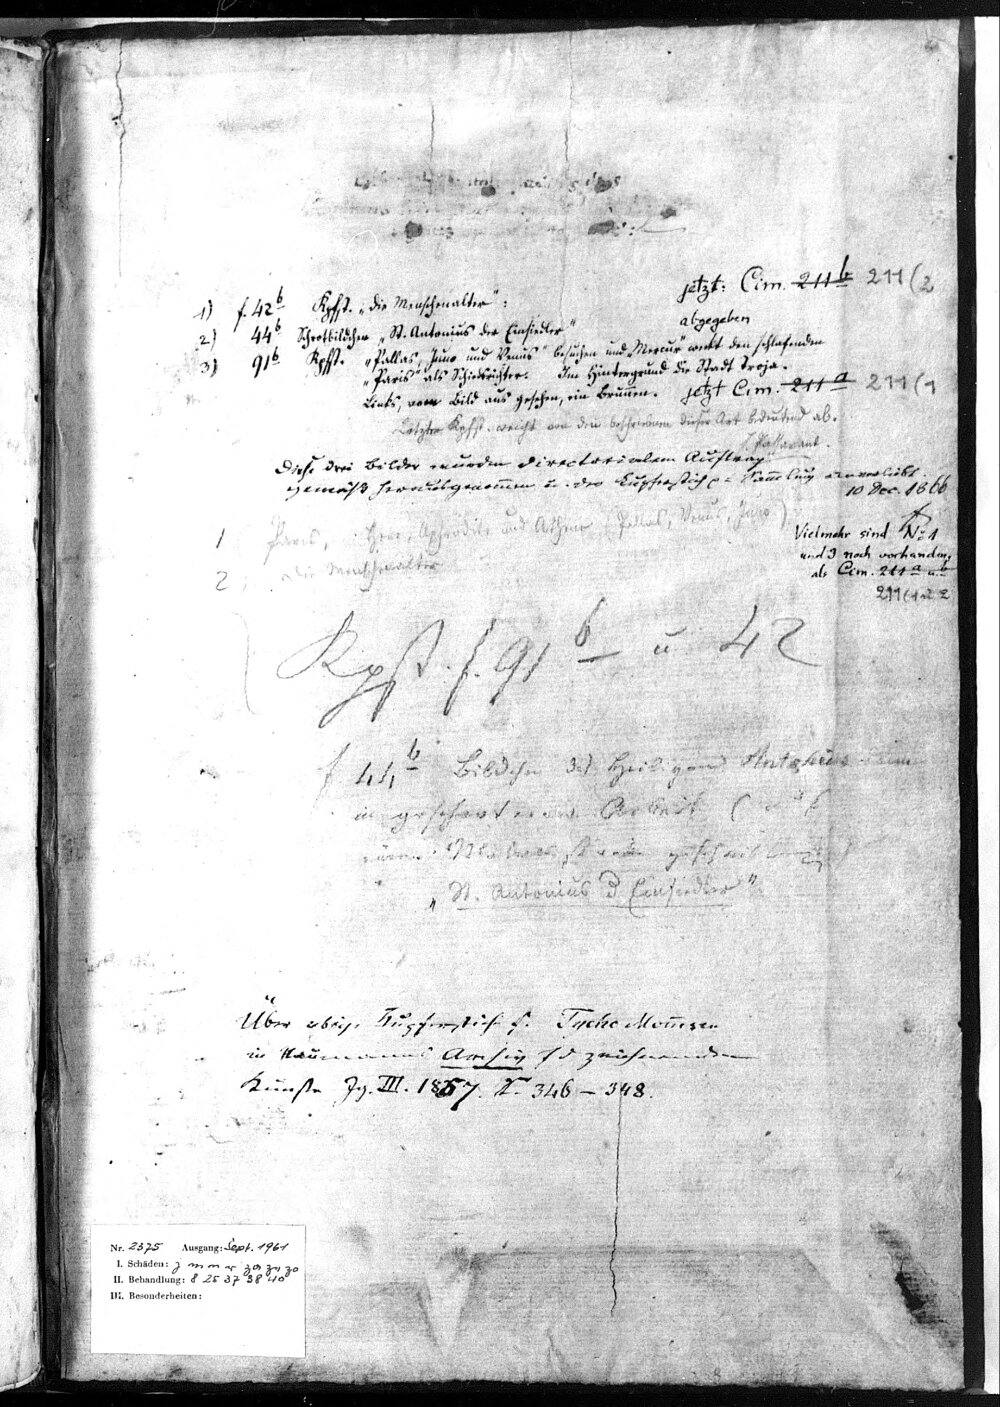 1) f. 42 b Kpfst. „Die Menschenalter": jetzt: Cim. 211 b 211 (2
2) 44 b Schrotbildchen „St. Antonius der Einsiedler" abgegeben
3) 91 b Kpfst. „Pallas, Juno und Venus" besuchen und „Mercur" weckt den schlafenden
„Paris" als Schiedsrichter. Im Hintergrund die Stadt Troja.
Links, vom Bild aus gesehen, ein Brunnen. jetzt Cim. 211 a 211 (1
Letzter Kpfst. weicht von den beschriebenen dieser Art bedeutend ab.
Passavant.
Diese drei Bilder wurden directorialem Auftrag
gemäß herausgenommen u. der Kupferstich-Sammlung einverleibt.
10 Dec. 1866
Vielmehr sind No 1
und 3 noch vorhanden,
als Cim. 211 a u. b
211 (1 u. 2
1 Paris, Here, Aphrodite und Athene (Pallas, Venus, Juno)
2 Die Menschenalter
Kpfst. f. 91 b u 42
f 44 b Bildchen des heiligen Antonius
in geschrotener Arbeit (
„St. Antonius d Einsiedler"
Über obig. Kupferstich s. Tycho Mommsen
in Naumanns Archiv f d zeichnenden
Künste Jg. III. 1857. S. 346 – 348.
Nr. 2375 Ausgang: Sept. 1961
I. Schäden:
II. Behandlung: 8 25 37 38 40
III. Besonderheiten: